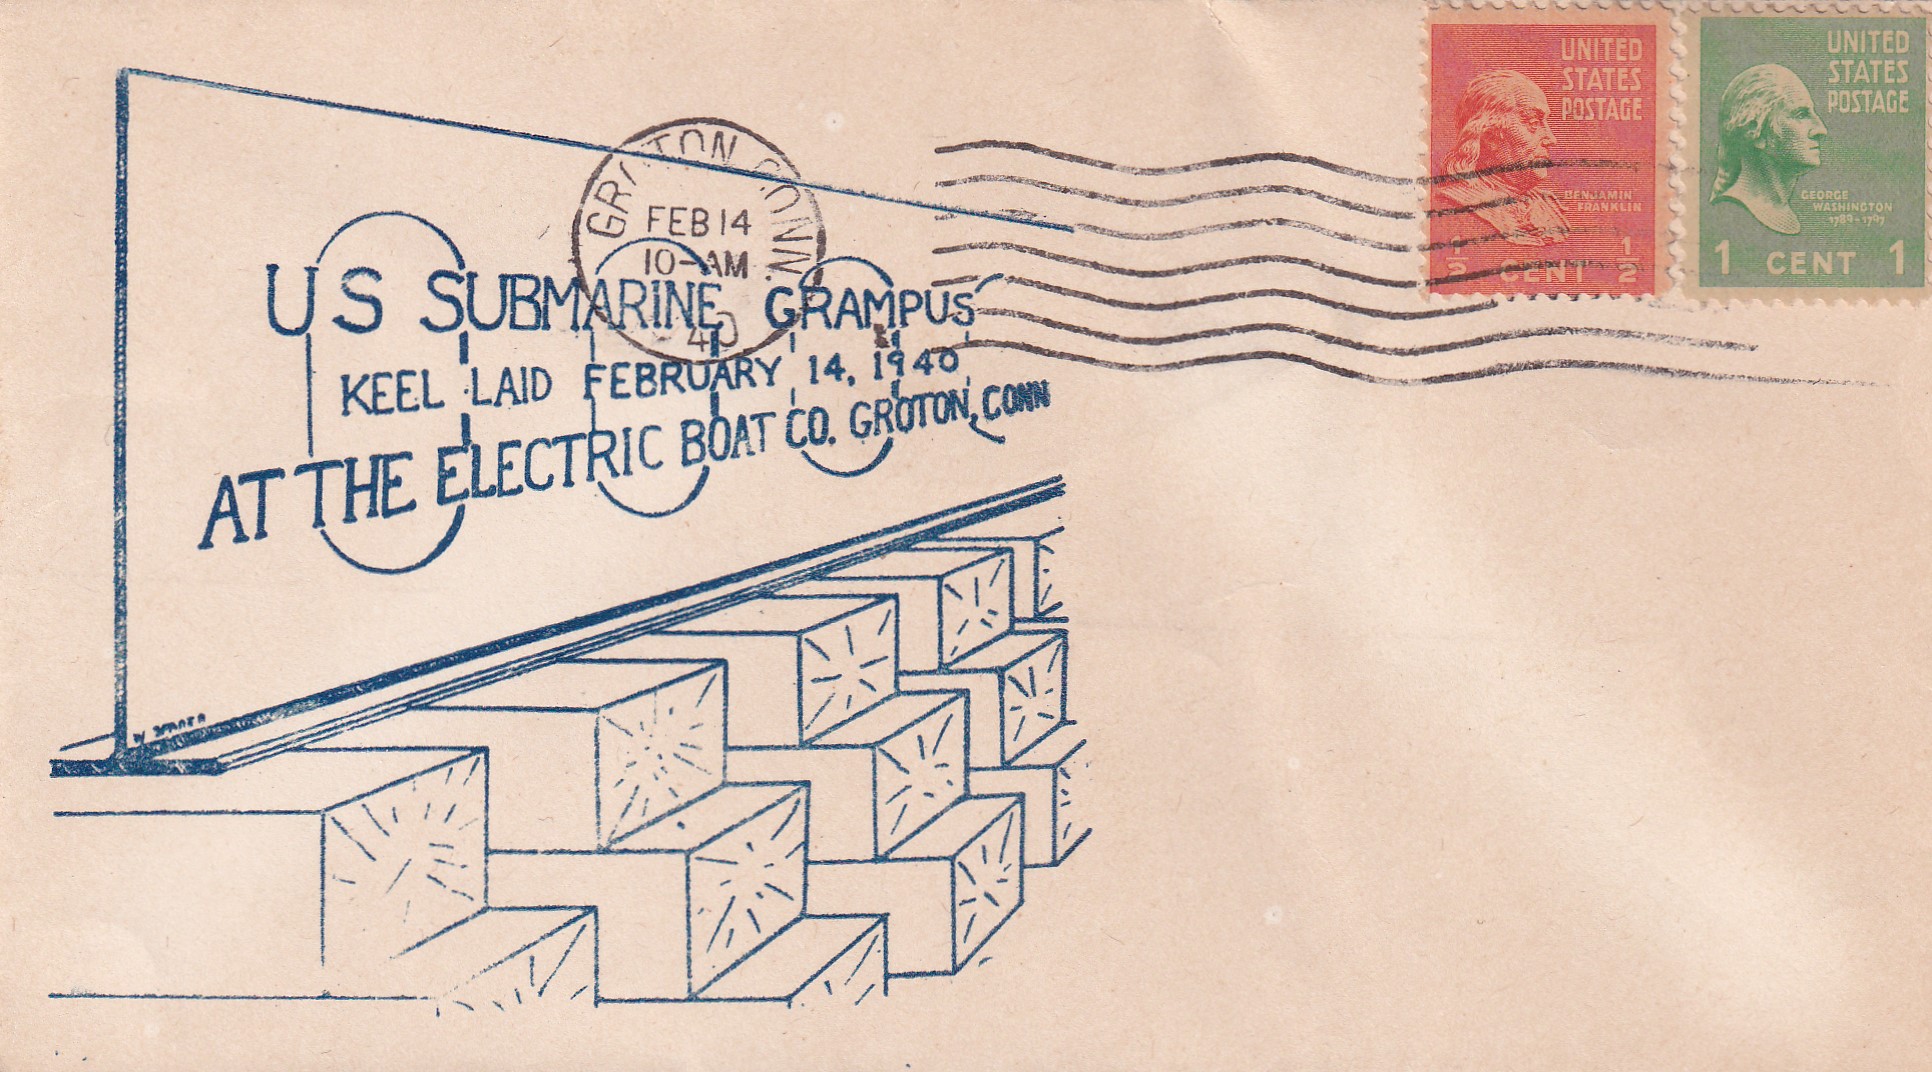 US SUBMARINE GRAMPUS
KEEL LAID FEBRUARY 14, 1940
AT THE ELECTRIC BOAT CO. GROTON, CONN
GROTON CONN.
FEB 14
10-AM
40
UNITED
STATES
POSTAGE
BENJAMIN
FRANKLIN
1/2 CENT 1/2
UNITED
STATES
POSTAGE
GEORGE
WASHINGTON
1789-1797
1 CENT 1